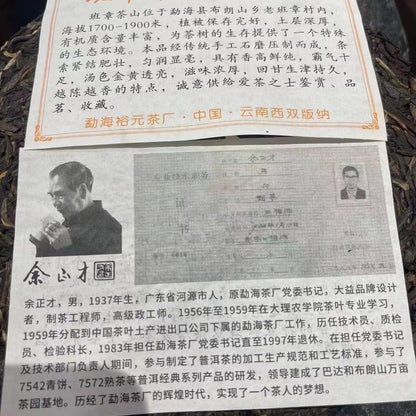 班章茶山位于勐海县布朗山乡老班章村内，
海拔1700-1900米，植被保存完好，土层深厚，
有机质含量丰富，为茶树的生存提供了一个特殊
的生态环境。本品经传统手工石磨压制而成，条
索紧结肥壮，匀润显毫，具有香高鲜纯，霸气十
足，汤色金黄透亮，滋味浓厚，回甘生津持久，
越陈越香的特点，诚意供给爱茶之士鉴赏、品
茗、收藏。
勐海裕元茶厂·中国·云南西双版纳
专业技术职务
证
书
余正才
男
余正才
余正才，男，1937年生，广东省河源市人，原勐海茶厂党委书记，大益品牌设计
者，制茶工程师，高级政工师。1956年至1959年在大理农学院茶叶专业学习，
1959年分配到中国茶叶土产进出口公司下属的勐海茶厂工作，历任技术员、质检
员、检验科长，1983年担任勐海茶厂党委书记直至1997年退休。在担任党委书记
及技术部门负责人期间，参与制定了普洱茶的加工生产规范和工艺标准，参与了
7542青饼、7572熟茶等普洱经典系列产品的研发，领导建成了巴达和布朗山万亩
茶园基地。历经了勐海茶厂的辉煌时代，实现了一个茶人的梦想。